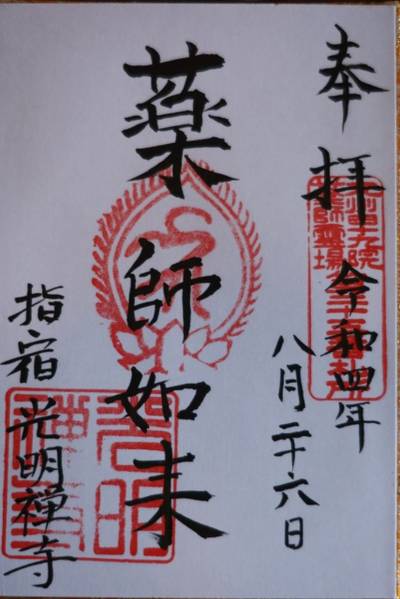 奉拝
令和四年
八月二十六日
薬師如来
指宿 光明禅寺